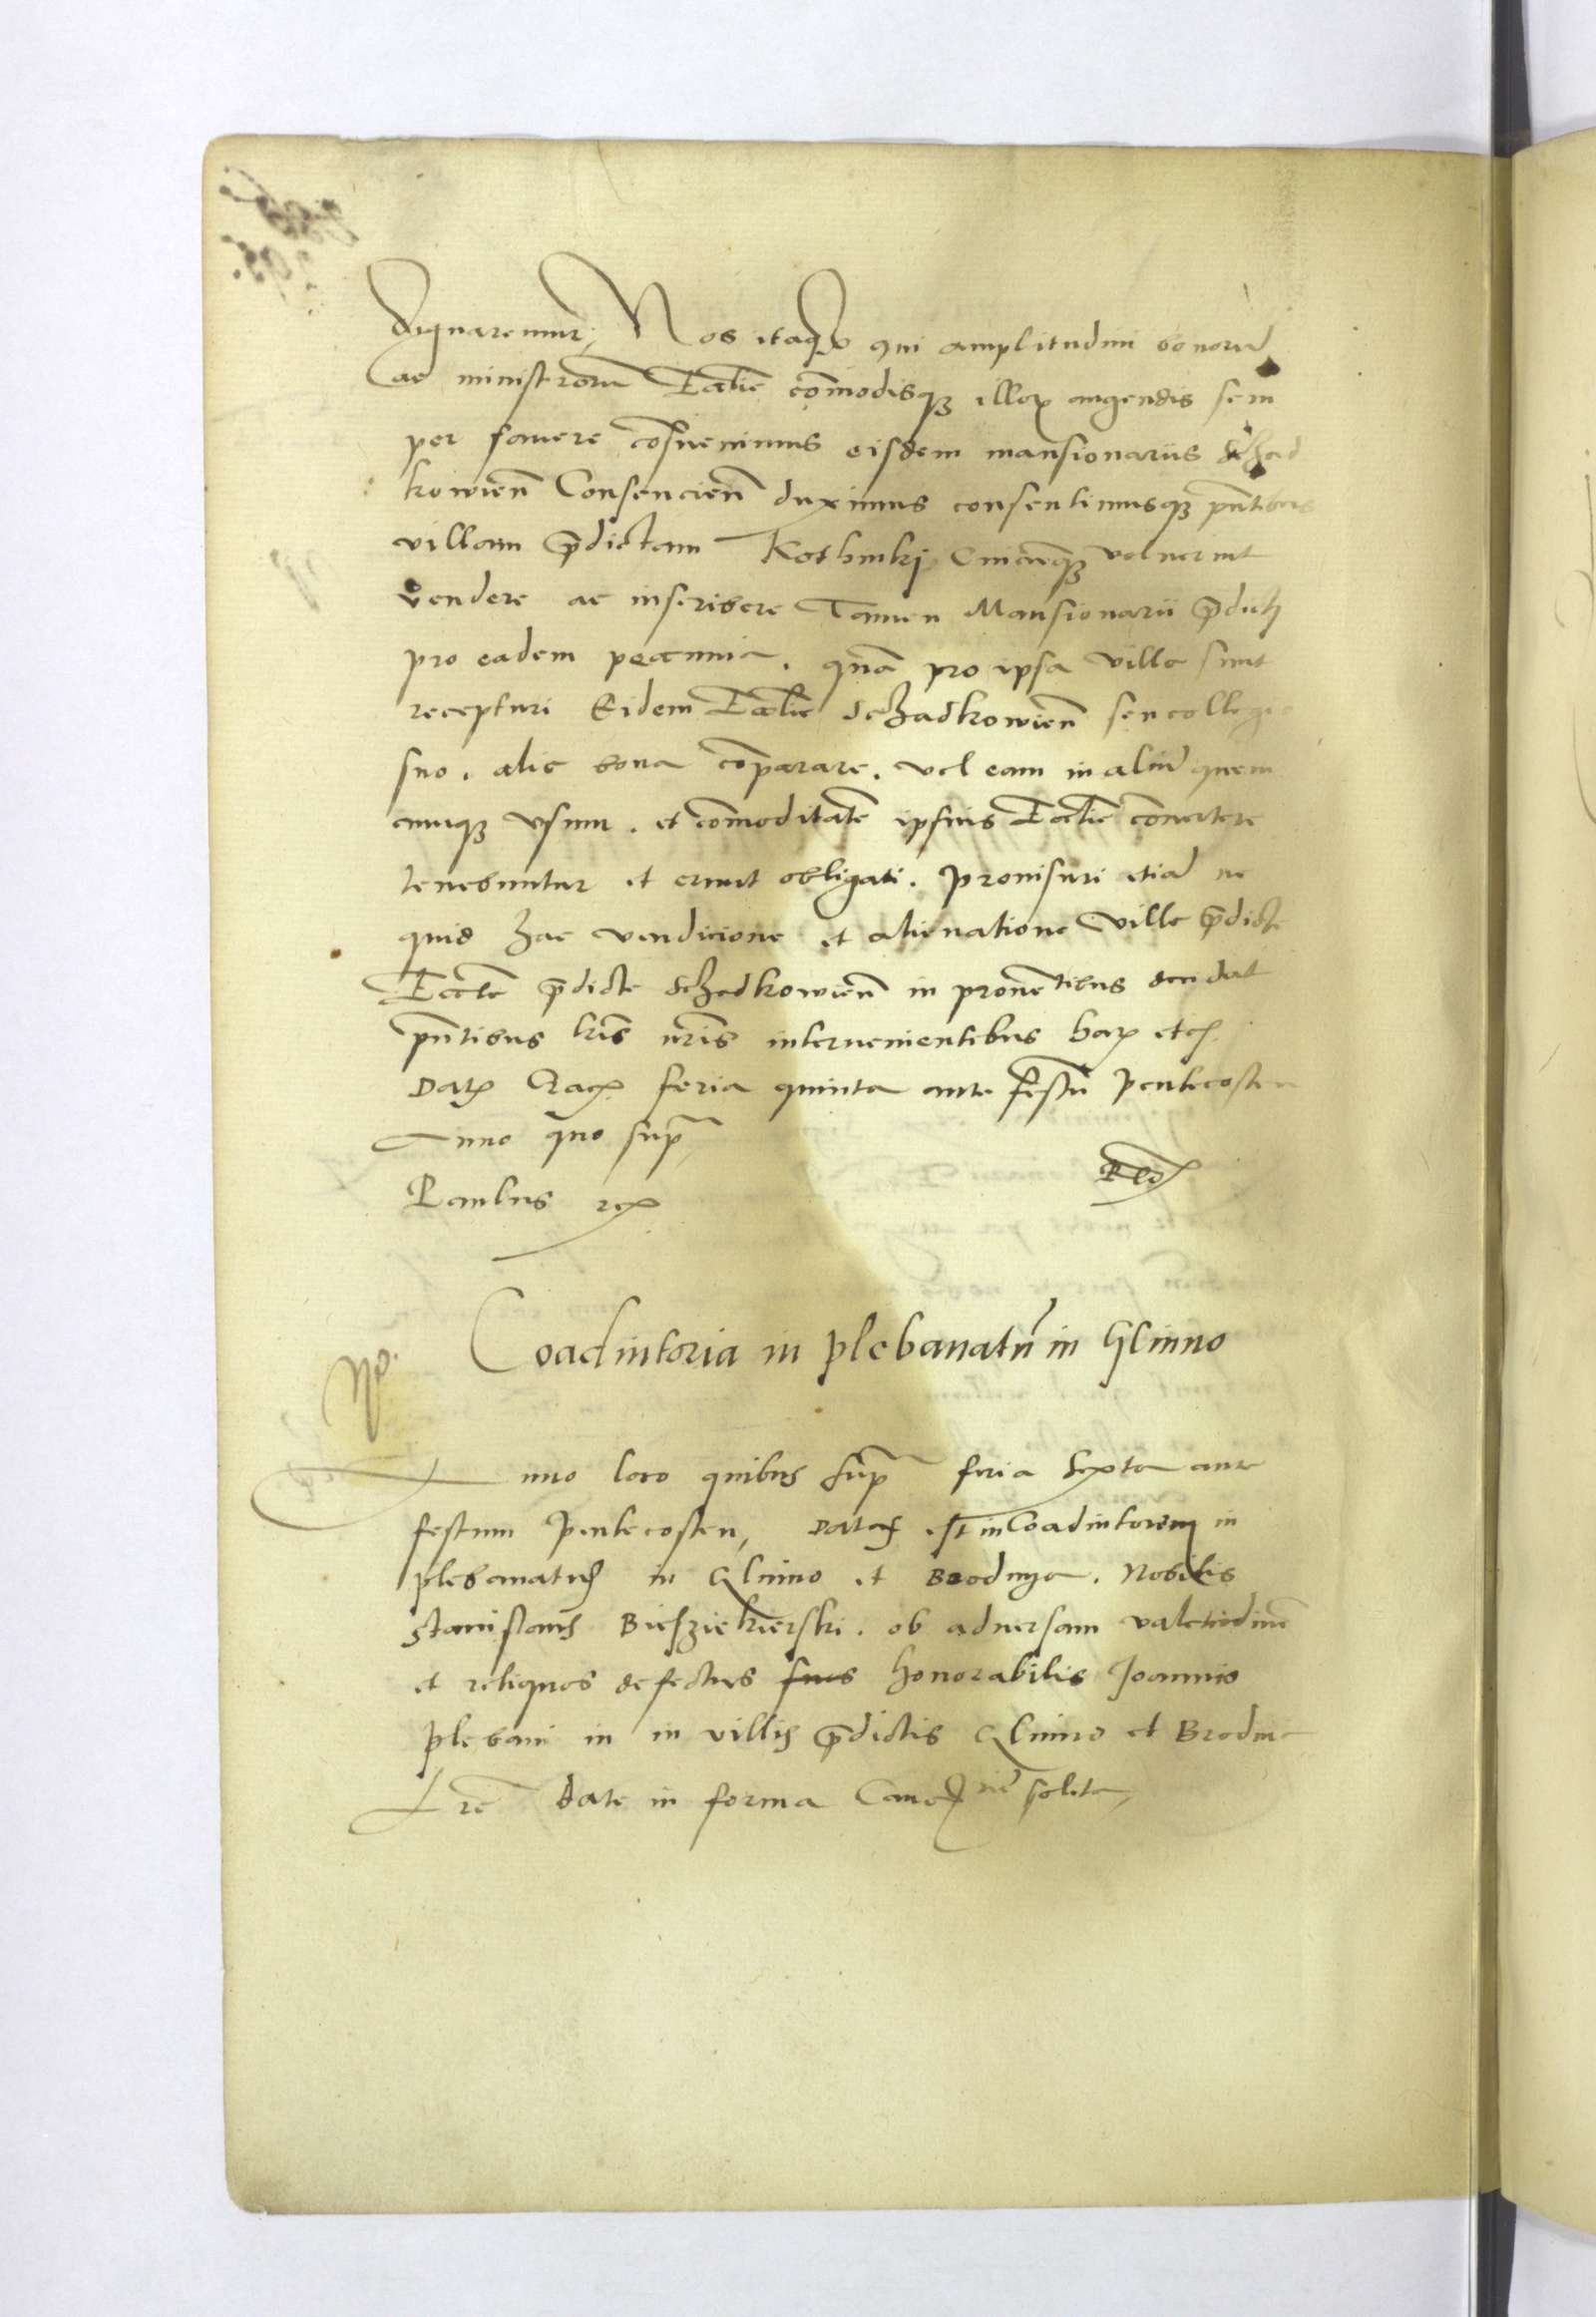 dignaremur, Nos itaq̃ qui amplitudini bonorũ
ac ministrorum Eccl̃ie com̃odisq3 illor̃ augendis sem
per fauere consueuimus eisdem mansionariis Schad
kowieñ Consencieñ duximus consentimusq3 pñtibus
villam p̃dictam Kothmki Cuicũq3 voluerint
vendere ac inscribere Tamen Mansionarii p̃dicti
pro eadem pecunia. quã pro ipsa villa sunt
recepturi Eidem Eccl̃ie Schadkowieñ seu collegio
suo. alia bona cõparare. vel eam in aliũ quem
cunq3 vsum. et com̃oditatẽ ipsius Eccl̃ie conuertere
tenebuntur et erunt obligati. prouisuri etiã ne
quid hac vendicione et alienatione Ville p̃dicte
Eccl̃ie p̃dicte Schadkowieñ in prouẽtibus
pñtibus lr̃is nr̃is interuenientibus har̃ etc.
Dat̃ Crac̃ feria quinta ante festũ Pentecosten
Anno quo sup̃
Paulus
Coadiutoria in plebanatũ in Glinno
Anno loco quibus sup̃ feria Sexta ante
festum Pentecosten, Datus est in Coadiutorem in
plebanatus in Glinno et Brodnya. Nobilis
Stanislaus Biesziekierski. ob aduersam valetudinẽ
et reliquos defectus suos Honorabilis Joannis
plebani in in villis p̃dictis Glinno et Brodnia
Lr̃e date in forma Canc̃ solita